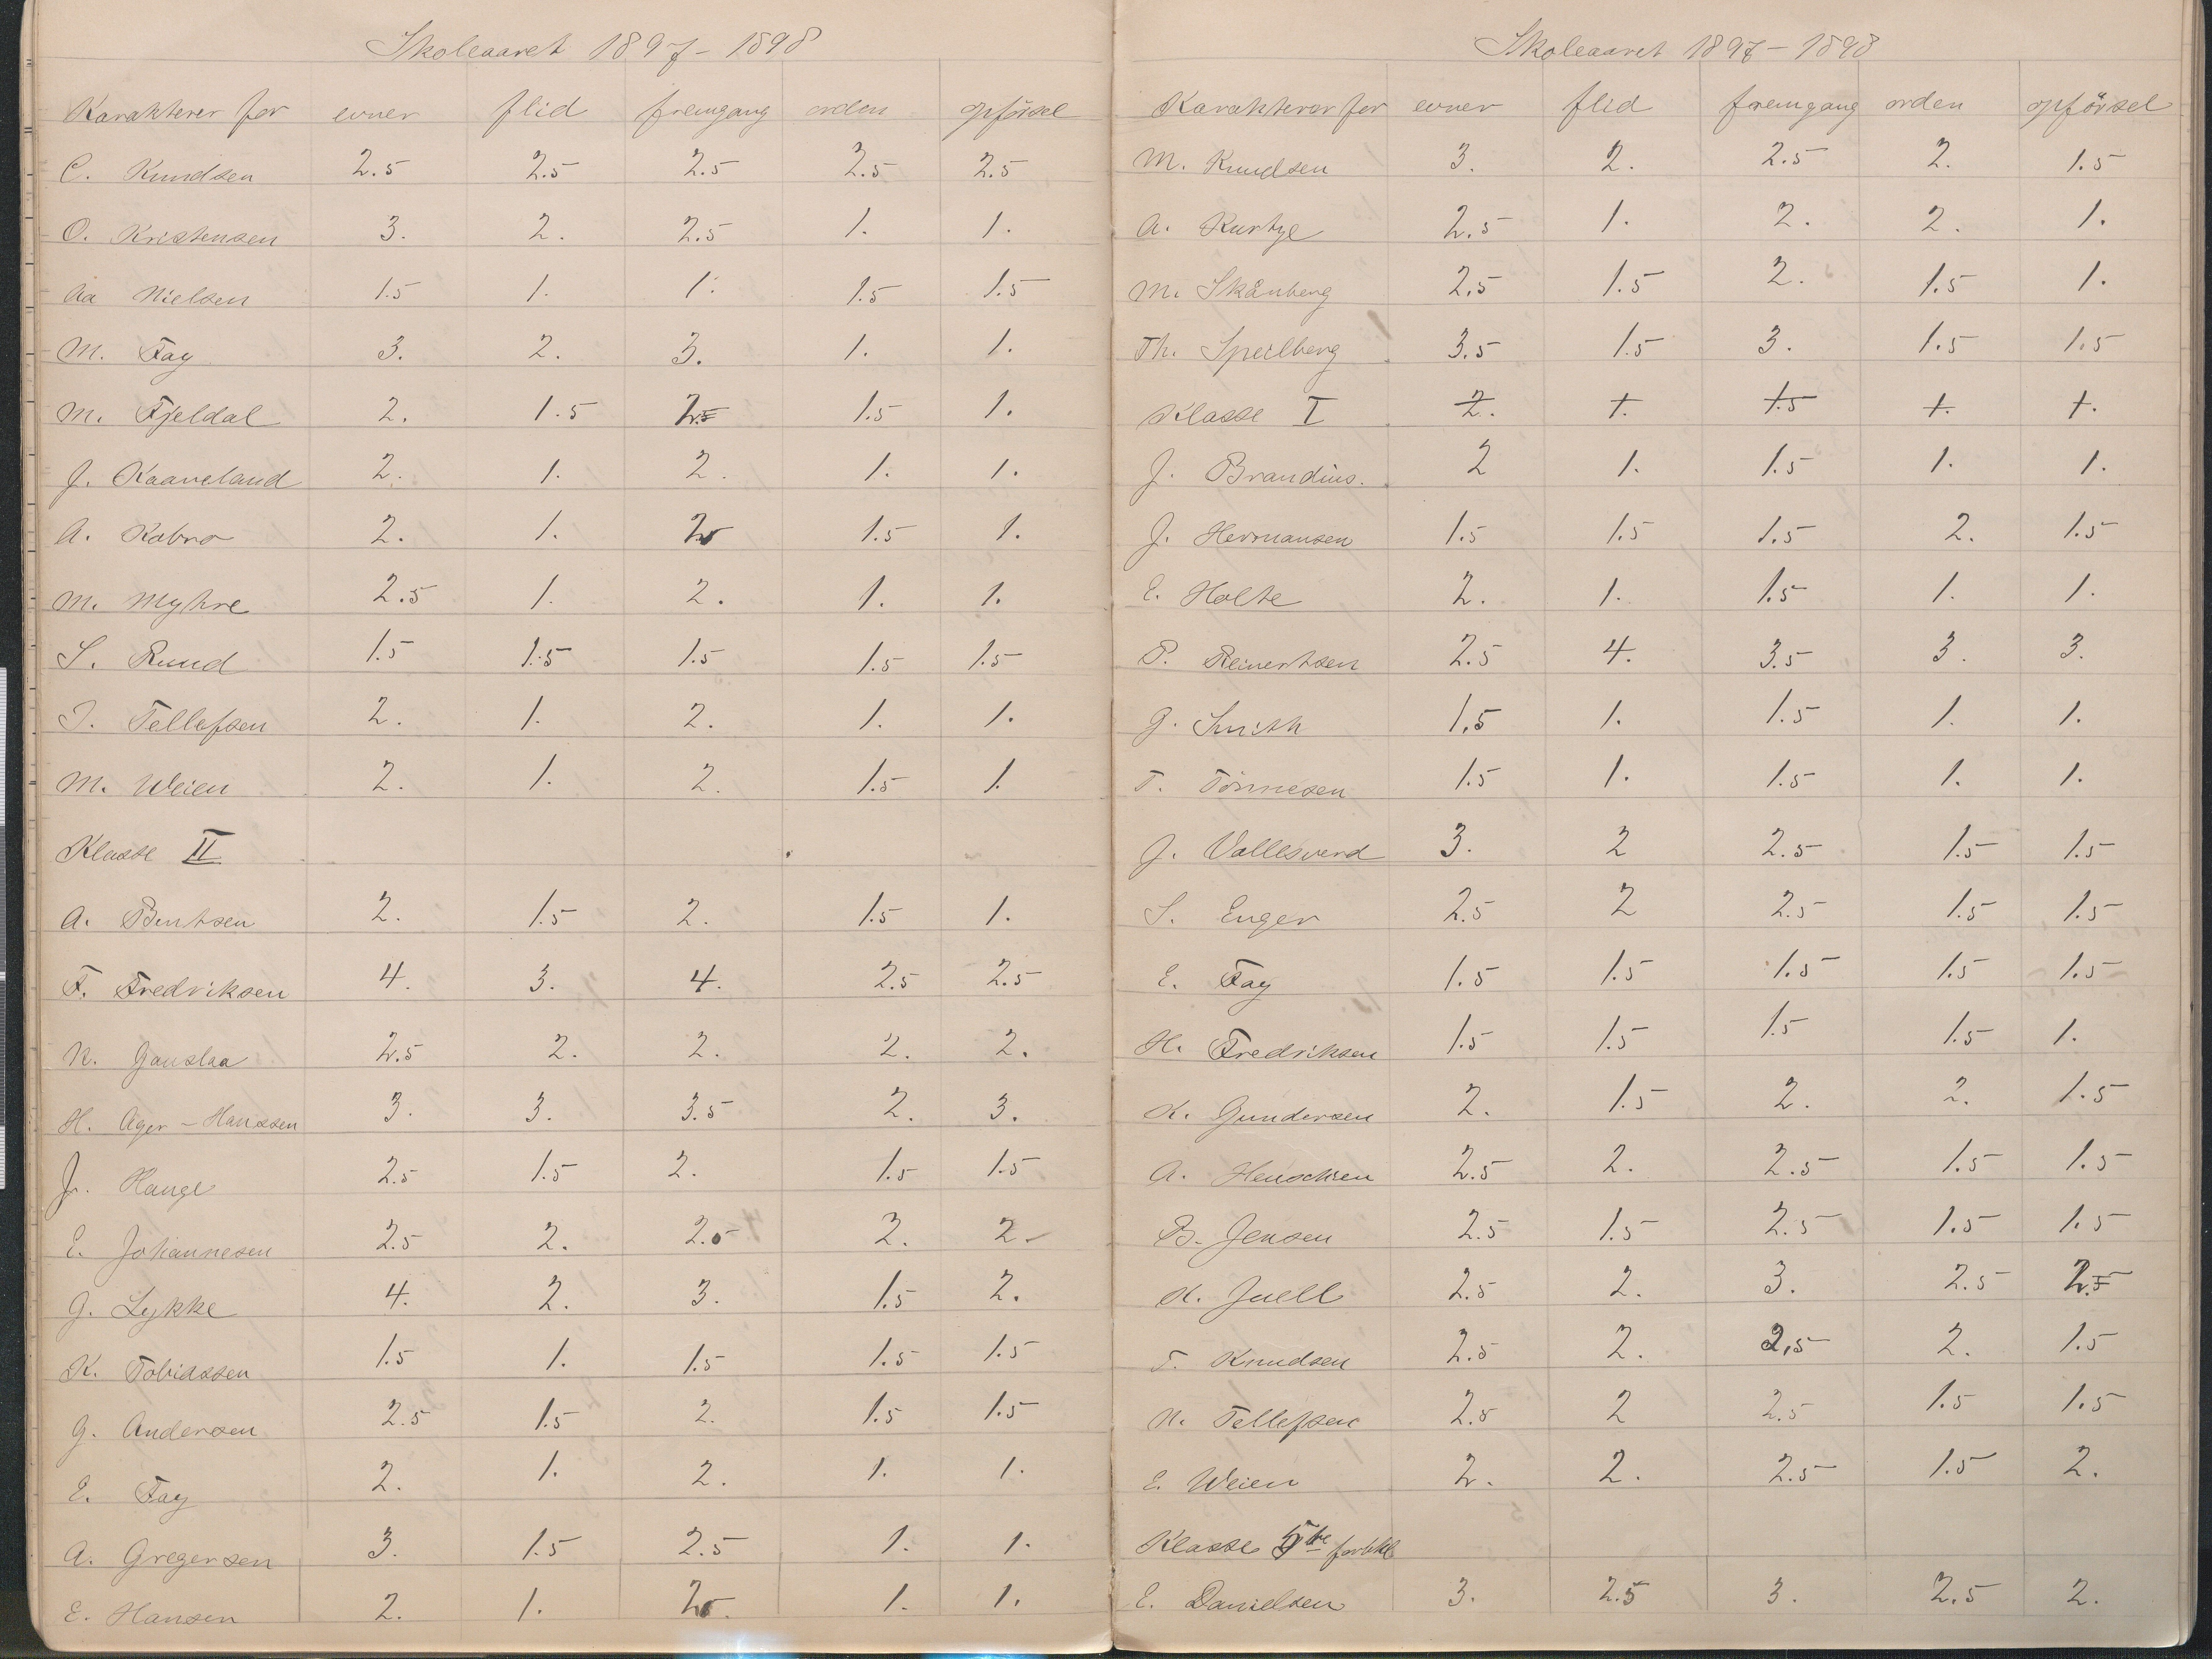 Skoleaaret 1897-1898
Karakterer for evner flid fremgang orden opførsel
C. Knudsen 2.5 2.5 2.5 2.5 2.5
O. Kristensen 3. 2. 2.5 1. 1.
Aa Nielsen 1.5 1. 1. 1.5 1.5
M. Fay 3. 2. 3. 1. 1.
M. Fjeldal 2. 1.5 1.5 1.
J. Kaaveland 2. 1. 2. 1. 1.
A. Kabro 2. 1. 1.5 1.
M. Myhre 2.5 1. 2. 1. 1.
S. Ruud 1.5 1.5 1.5 1.5 1.5
T. Tellefsen 2. 1. 2. 1. 1.
M. Weien 2. 1. 2. 1.5 1.
Klasse II
A. Bentsen 2. 1.5 2. 1.5 1.
F. Fredriksen 4. 3. 4. 2.5 2.5
N. Gauslaa 2.5 2. 2. 2. 2.
H. Ager-Hanssen 3. 3. 3.5 2. 3.
Hauge 2.5 1.5 2. 1.5 1.5
E. Johannesen 2.5 2. 2.5 2. 2.
G. Lykke 4. 2. 3. 1.5 2.
K. Tobiassen 1.5 1. 1.5 1.5 1.5
G. Andersen 2.5 1.5 2. 1.5 1.5
E. Fay 2. 1. 2. 1. 1.
A. Gregersen 3. 1.5 2.5 1. 1.
E. Hansen 2. 1. 1. 1.
Skoleaaret 1897-1898
Karakterer for evner flid fremgang orden opförsel
M. Knudsen 3. 2. 2.5 2. 1.5
A. Kurtze 2.5 1. 2. 2. 1.
M. Skånberg 2.5 1.5 2. 1.5 1.
Th. Speilberg 3.5 1.5 3. 1.5 1.5
Klasse I 2. 1. 1.5 1. 1.
J. Brandius. 2 1. 1.5 1. 1.
J. Hermansen 1.5 1.5 1.5 2. 1.5
E. Holte 2. 1. 1.5 1. 1.
P. Reinertsen 2.5 4. 3.5 3. 3.
G. Smith 1.5 1. 1.5 1. 1.
T. Tönnesen 1.5 1. 1.5 1. 1.
J. Vallesverd 3. 2 2.5 1.5 1.5
S. Enger 2.5 2 2.5 1.5 1.5
E. Fay 1.5 1.5 1.5 1.5 1.5
H. Fredriksen 1.5 1.5 1.5 1.5 1.
K. Gundersen 2. 1.5 2. 2. 1.5
A. Henschien 2.5 2. 2.5 1.5 1.5
B. Jensen 2.5 1.5 2.5 1.5 1.5
K. Juell 2.5 2. 3. 2.5
T. Knudsen 2.5 2. 2.5 2. 1.5
N. Tellefsen 2.5 2 2.5 1.5 1.5
E. Weien 2. 2. 2.5 1.5 2.
Klasse
E. Danielsen 3. 2.5 3. 2.5 2.